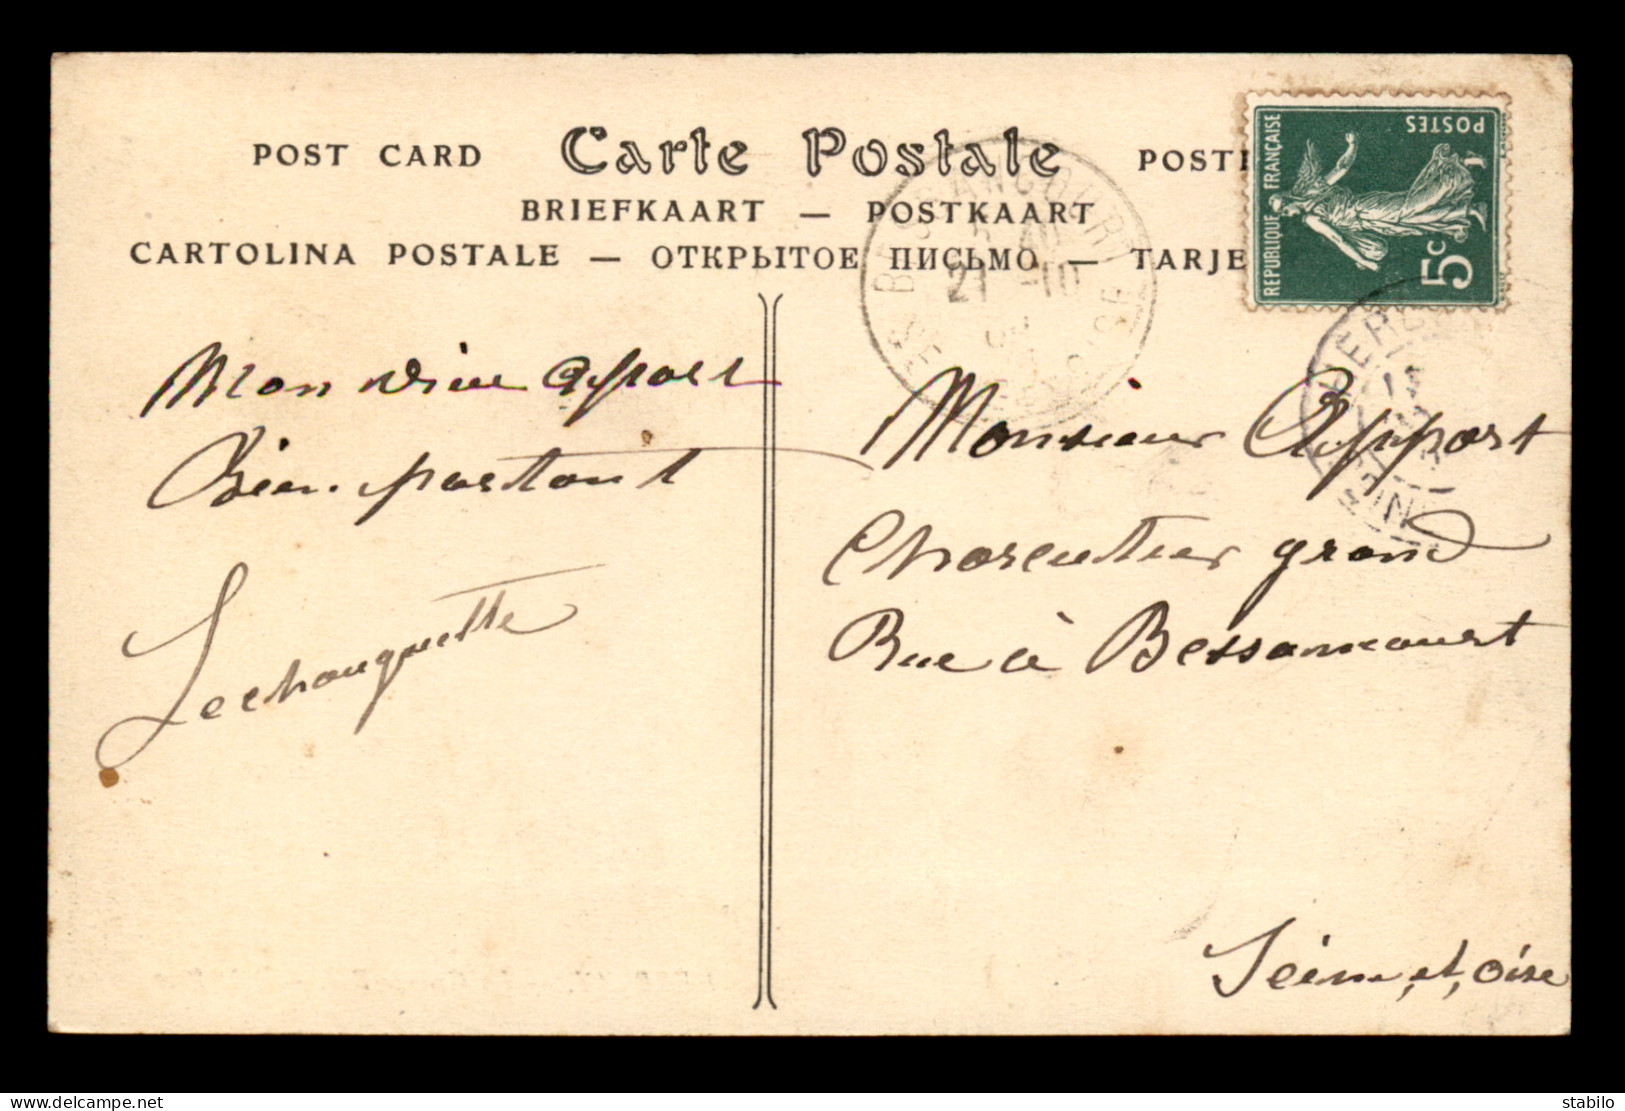 POST CARD Carte Postale POSTK
BRIEFKAART — POSTKAART
CARTOLINA POSTALE — ОТКРЫТОЕ ПИСЬМО — TARJE
REPUBLIQUE FRANÇAISE
POSTES
5c
BESSANCOURT
21 -10
SEINE ET OISE
Mon vieu Apport
Bien portant
Lechauguette
Monsieur Apport
Charcutier grand
Rue à Bessancourt
Seine, et, oise
delcampe.net
stabilo